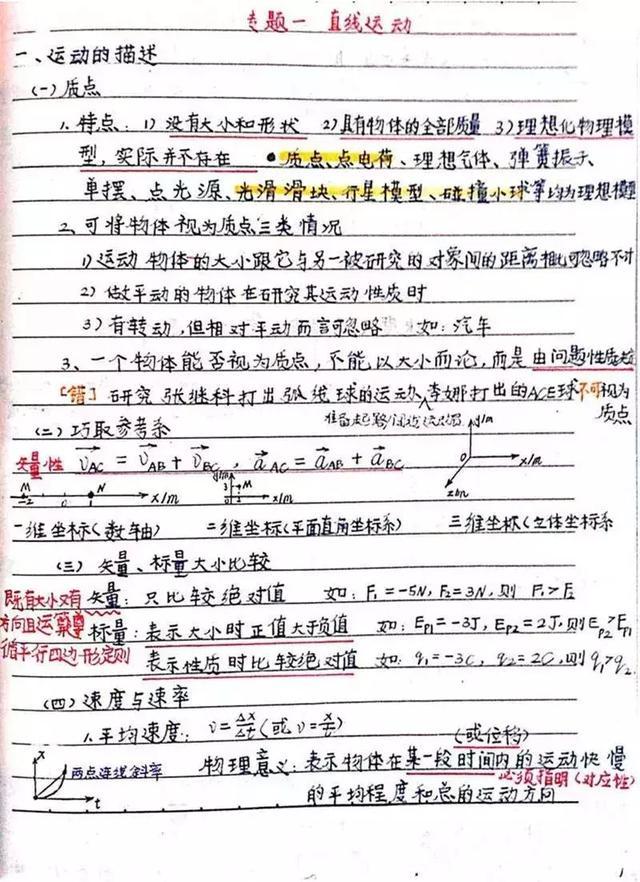 专题一 直线运动
一、运动的描述
(一)质点
1、特点：1) 没有大小和形状 2)具有物体的全部质量 3)理想化物理模
型，实际并不存在 •质点、点电荷、理想气体、弹簧振子、
单摆、点光源、光滑滑块、行星模型、碰撞小球等均为理想模型
2、可将物体视为质点三类情况
1)运动物体的大小跟它与另一被研究的对象间的距离相比可忽略不计
2) 做平动的物体在研究其运动性质时
3) 有转动，但相对平动而言可忽略 如：汽车
3、一个物体能否视为质点，不能以大小而论，而是由问题性质
[错] 研究张继科打出弧线球的运动、李娜打出的ACE球不可视为
质点
(二) 巧取参考系
y/m
矢量性 v⃗AC = v⃗AB + v⃗BC , a⃗AC = a⃗AB + a⃗BC
0 x/m
z/m
M -2 0 1 N x/m
y/m 3 M x/m
一维坐标(数轴) 二维坐标(平面直角坐标系) 三维坐标(立体坐标系
(三) 矢量、标量大小比较
既有大小又有 矢量：只比较绝对值 如：F₁=-5N, F₂=3N, 则 F₁>F₂
方向且运算遵 标量：表示大小时正值大于负值 如：EP1=-3J, EP2=2J, 则EP2>EP1
循平行四边形定则 表示性质时比较绝对值 如：q₁=-3C, q₂=2C, 则q₁>q₂.
(四) 速度与速率
1.平均速度：v=Δx/Δt(或v=x/t) (或位移)
x t 两点连线斜率
物理意义：表示物体在某一段时间内的运动快慢
必须指明(对应性)
的平均程度和总的运动方向
1